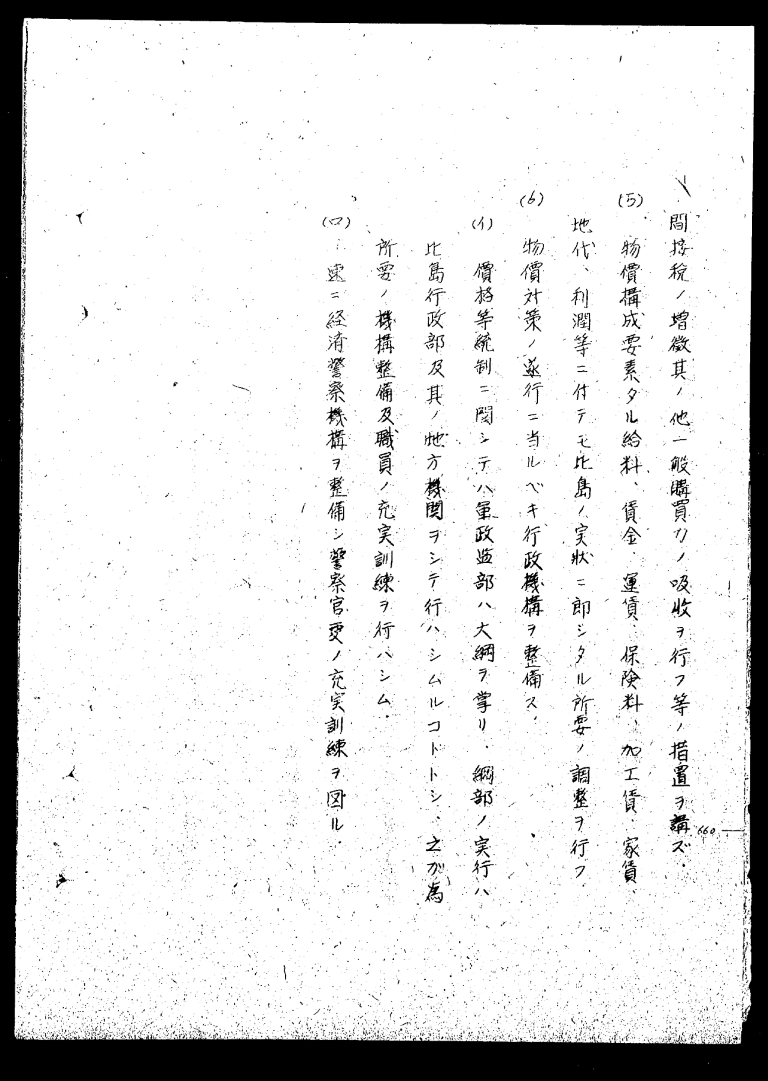 間接税ノ増徴其ノ他一般購買力ノ吸収ヲ行フ等ノ措置ヲ講ズ、
(5) 物價構成要素タル給料、賃金、運賃、保険料、加工賃、家賃、
地代、利潤等ニ付テモ比島ノ実状ニ即シタル所要ノ調整ヲ行フ
(6) 物價対策ノ遂行ニ当ルベキ行政機構ヲ整備ス、
(イ) 價格等統制ニ関シテハ軍政監部ハ大綱ヲ掌リ、綱部ノ実行ハ
比島行政部及其ノ地方機関ヲシテ行ハシムルコトトシ、之ガ為
所要ノ機構整備及職員ノ充実訓練ヲ行ハシム、
(ロ) 速ニ経済警察機構ヲ整備シ警察官吏ノ充実訓練ヲ図ル、
660